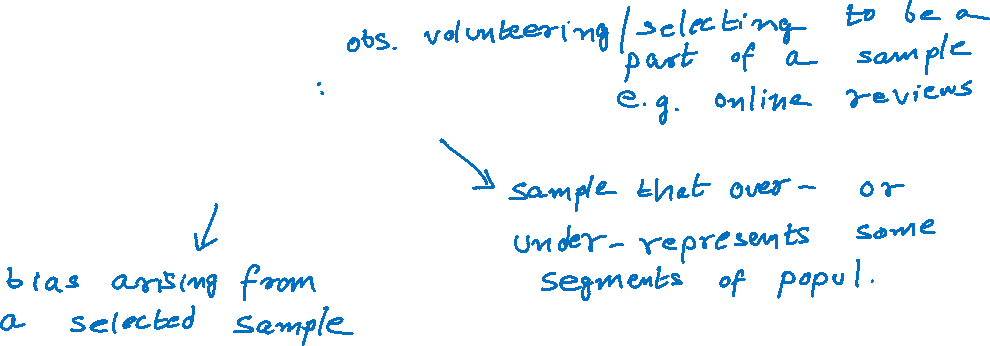 obs. volunteering/selecting to be a
part of a sample
e.g. online reviews
:
sample that over- or
under-represents some
segments of popul.
bias arising from
a selected sample